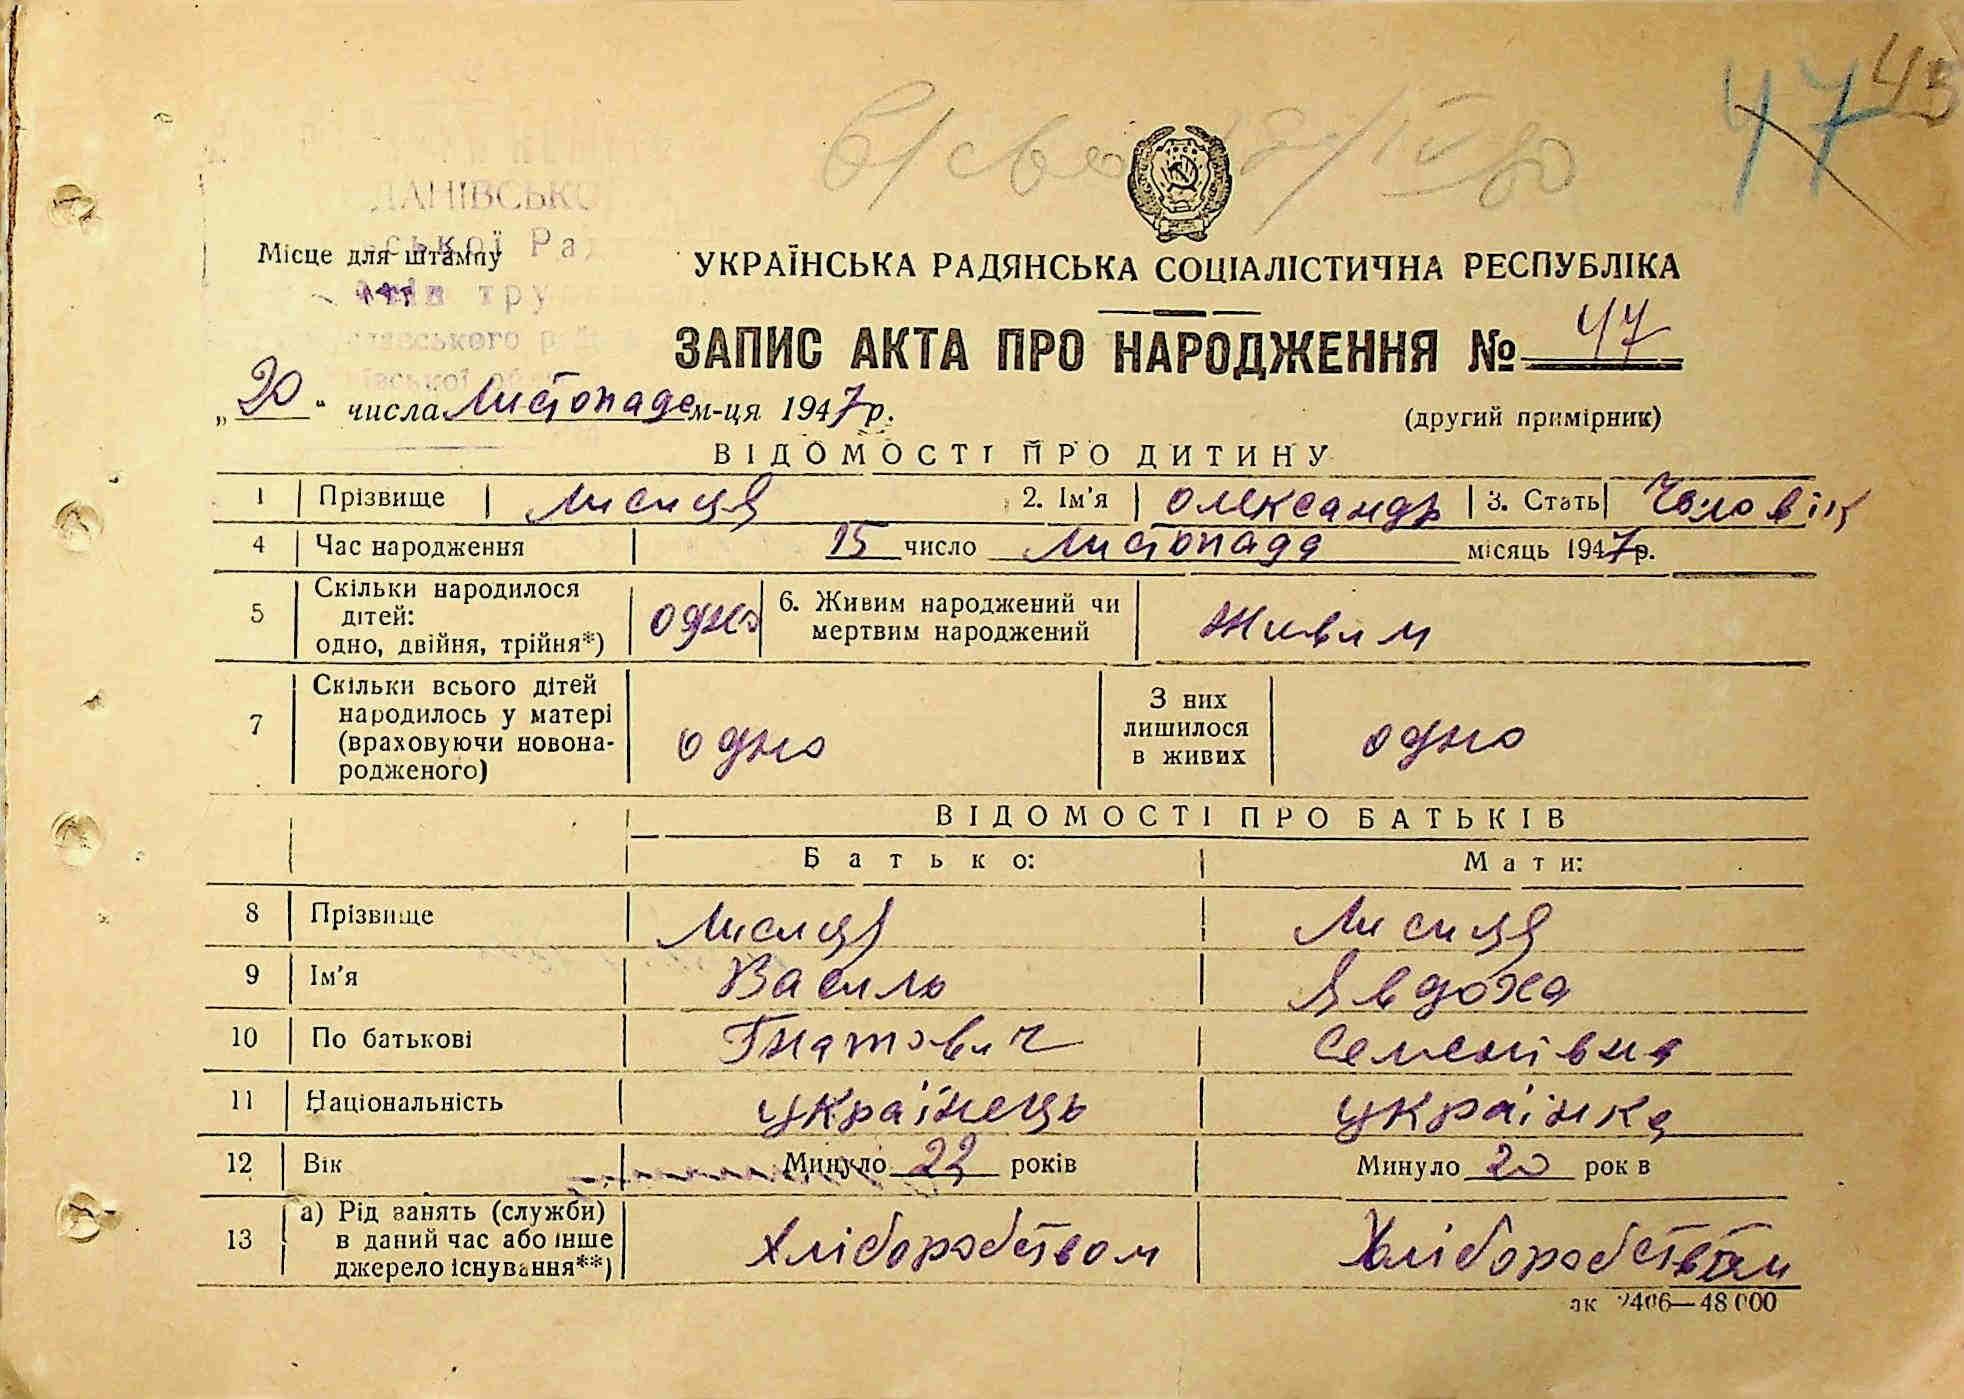 47 45
ДАНІВСЬКО
ської Рад
Місце для штампу
УКРАЇНСЬКА РАДЯНСЬКА СОЦІАЛІСТИЧНА РЕСПУБЛІКА
ЗАПИС АКТА ПРО НАРОДЖЕННЯ № 47
„20“ числа Листопада м-ця 1947р.
(другий примірник)
ВІДОМОСТІ ПРО ДИТИНУ
1 Прізвище Лисиця 2. Ім'я Олександр 3. Стать Чоловік
4 Час народження 15 число Листопада місяць 1947р.
5 Скільки народилося дітей: одно, двійня, трійня*) одно 6. Живим народжений чи мертвим народжений Живим
7 Скільки всього дітей народилось у матері (враховуючи новона-родженого) одно З них лишилося в живих одно
ВІДОМОСТІ ПРО БАТЬКІВ
Батько: Мати:
8 Прізвище Лисиця Лисиця
9 Ім'я Василь Явдоха
10 По батькові Гнатович Семенівна
11 Національність українець українка
12 Вік Минуло 22 років Минуло 20 рок в
13 а) Рід занять (служби) в даний час або інше джерело існування**) Хліборобством Хліборобством
ак 2406—48 000